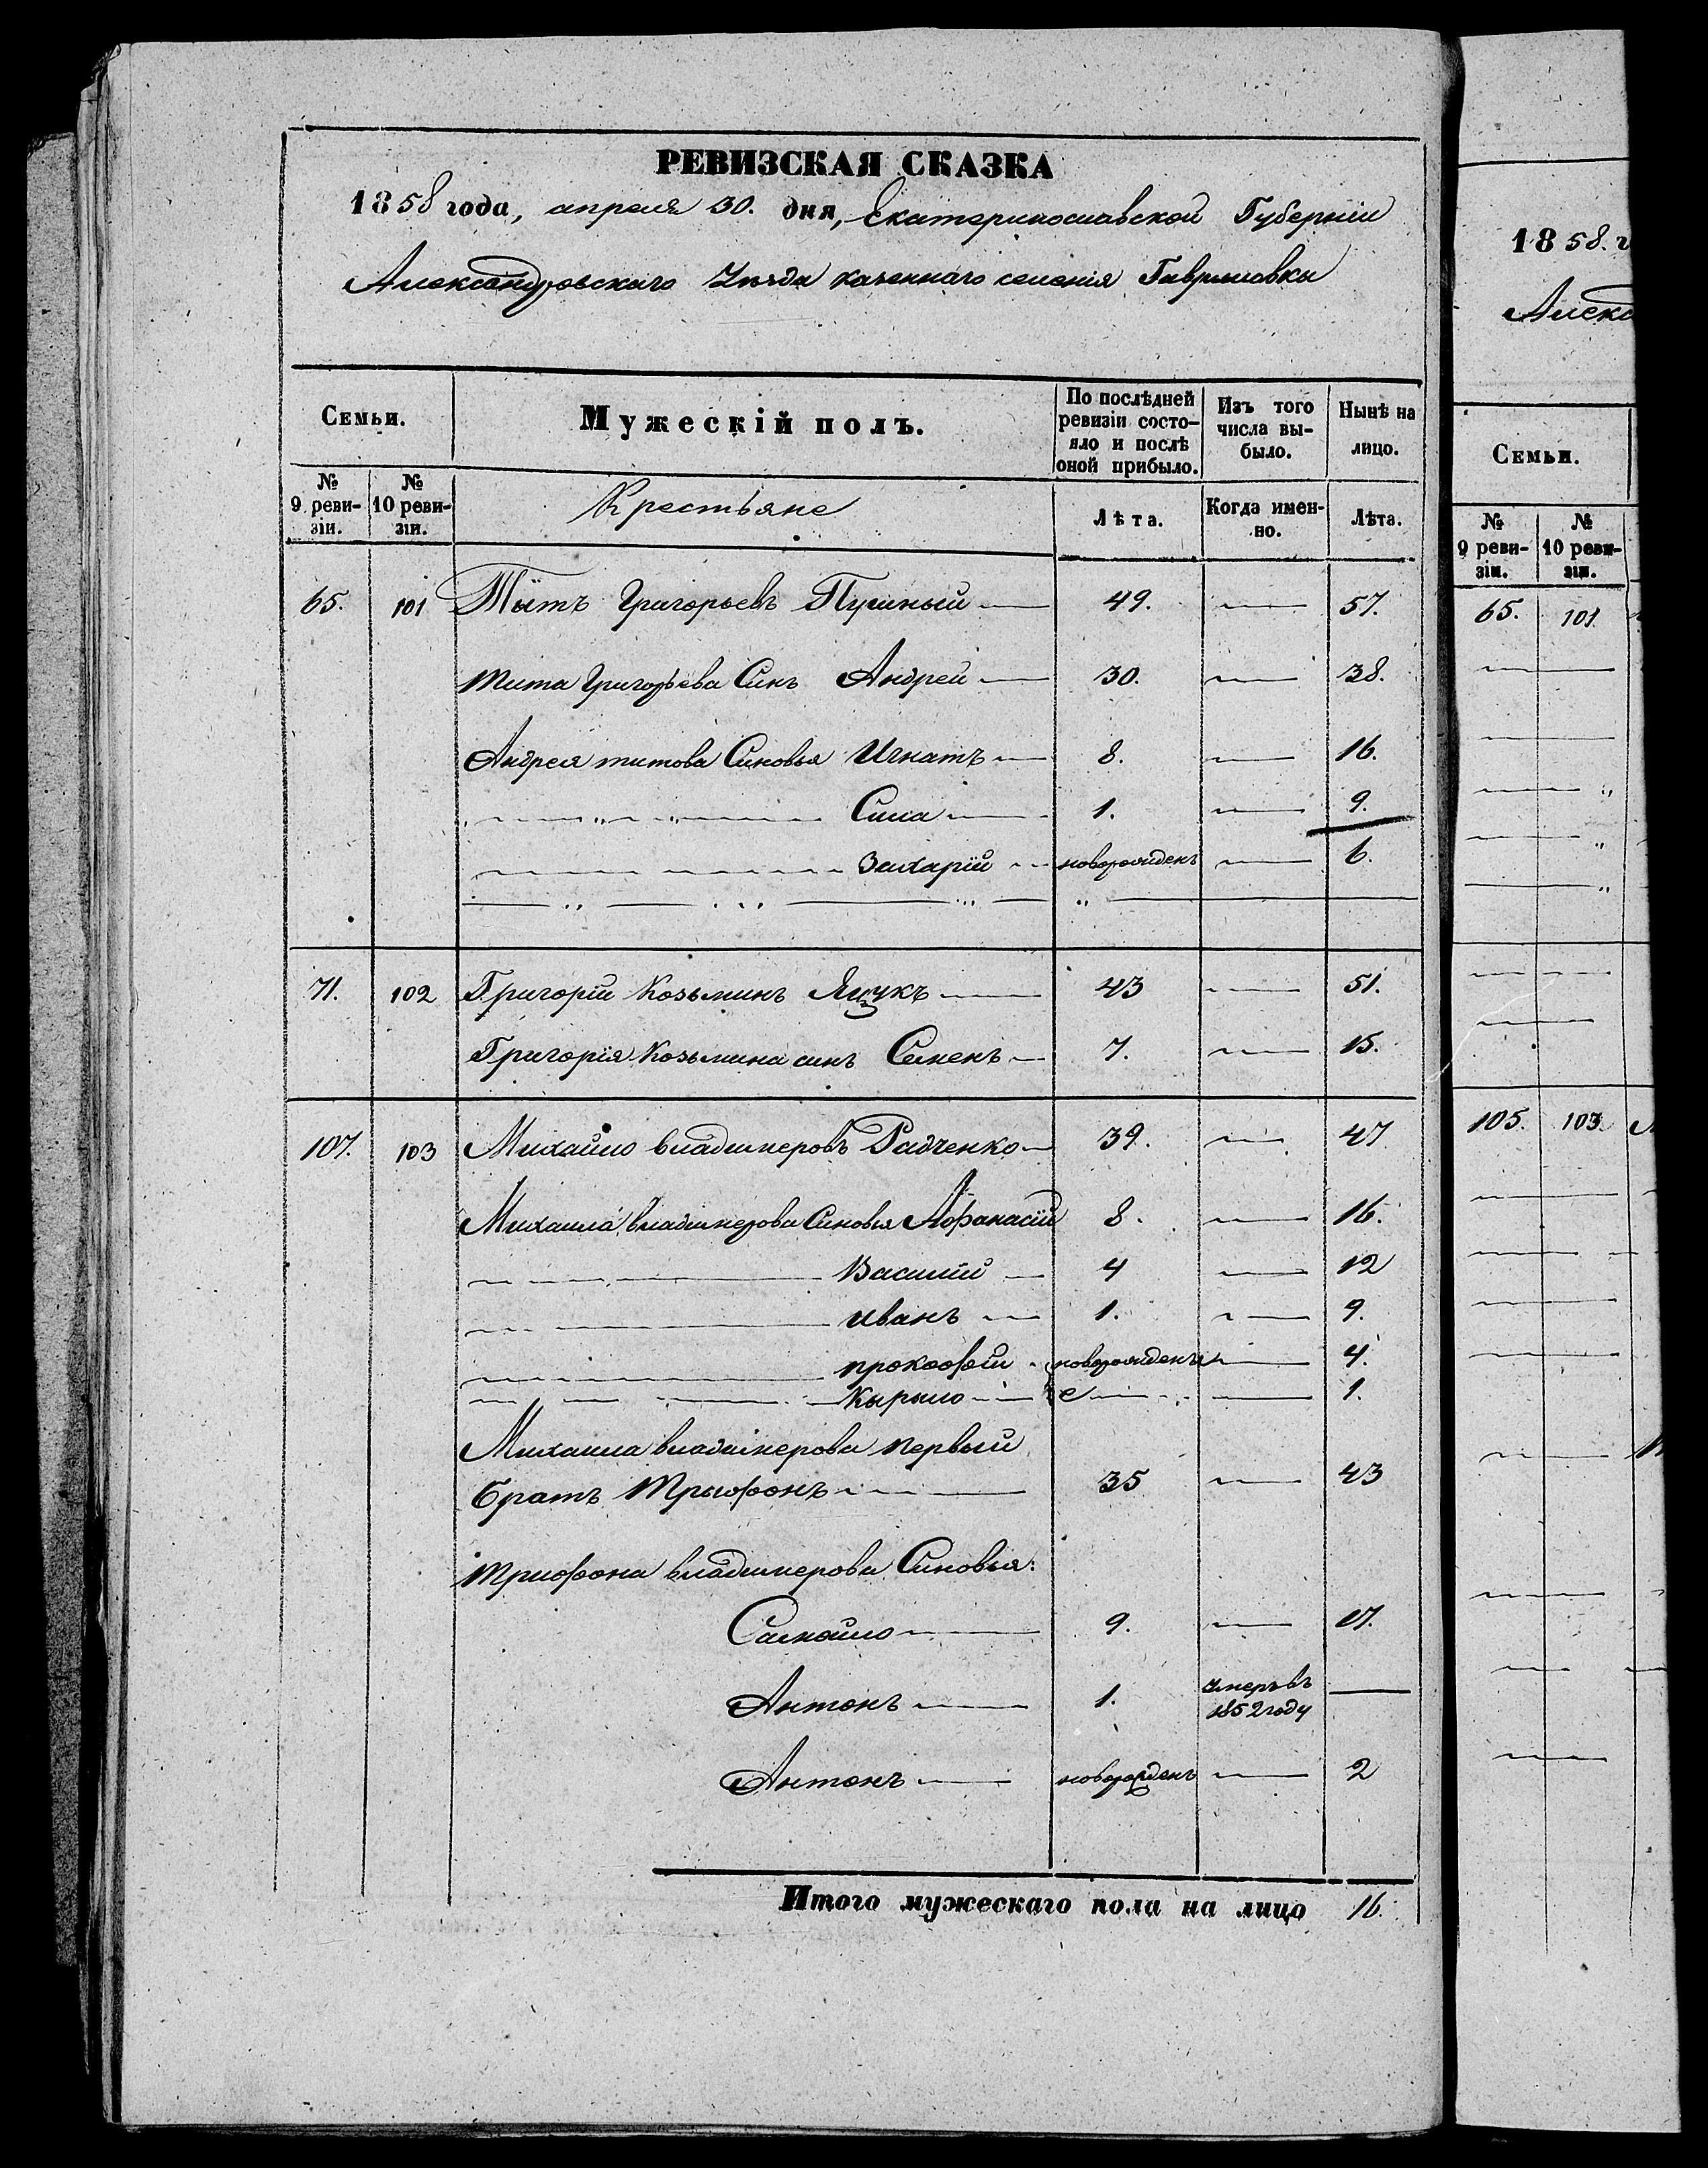 РЕВИЗСКАЯ СКАЗКА
1858 года, апреля 30. дня, Екатеринославской Губерніи
Александровского Уезда казенного селенія Гавриловки
Семьи. Мужескій полъ. По послѣдней ревизіи состояло и послѣ оной прибыло. Изъ того числа выбыло. Нынѣ на лицо.
№ 9 ревизіи. № 10 ревизіи. Крестьяне Лѣта. Когда именно. Лѣта.
65. 101 Тытъ Григорьевъ 49. — 57.
тита Григорьева Синъ Андрей — 30. — 38.
Андрея титова Синовья Игнатъ — 8. — 16.
Сила — 1. — 9.
Захарій — новорожденъ — 6.
71. 102 Григорій Козьминъ Яцукъ — 43 — 51.
Григорія Козьмина синъ Семенъ — 7. — 15.
107. 103 Михайло владимеровъ Радченко — 39. — 47
Михаила владимерова Синовья Афанасій 8. — 16.
Василій — 4 — 12
иванъ — 1. — 9.
прокофій новорожденъ — 4.
Кырыло — 1.
Михаила владимерова первый
братъ Трыфонъ — 35 — 43
Трифона владимерова Синовья:
Самойло — 9. — 17.
Антонъ — 1. умеръ въ 1852 году —
Антонъ — новорожденъ — 2
Итого мужескаго пола на лицо 16.
1858. г
Алекс
Семьи.
№ 9 ревизіи. № 10 ревизіи.
65. 101
105. 103